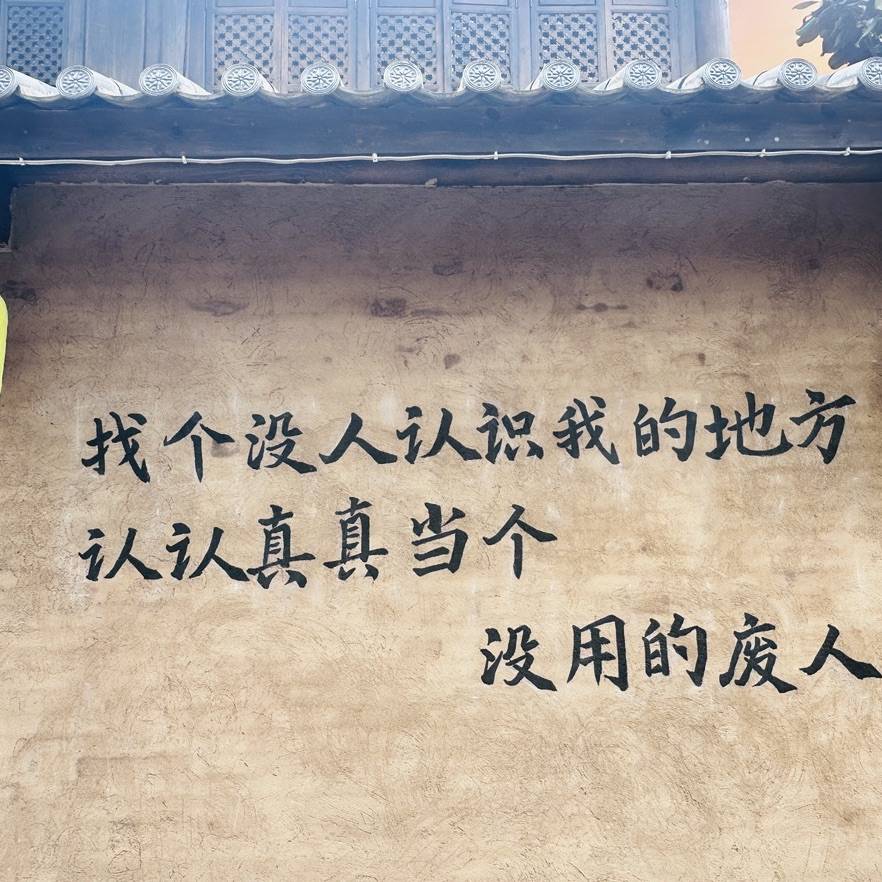 找个没人认识我的地方
认认真真当个
没用的废人